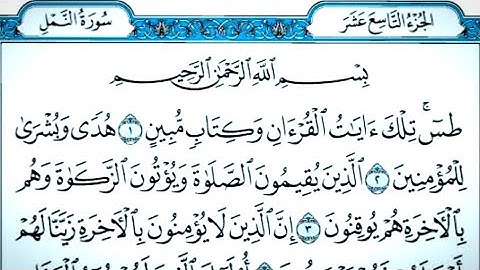 الجزء التاسع عشر سورة النمل
بِسْمِ ٱللَّهِ ٱلرَّحْمَٰنِ ٱلرَّحِيمِ
طسٓ ۚ تِلْكَ ءَايَٰتُ ٱلْقُرْءَانِ وَكِتَابٍ مُّبِينٍ ١ هُدًى وَبُشْرَىٰ
لِلْمُؤْمِنِينَ ٢ ٱلَّذِينَ يُقِيمُونَ ٱلصَّلَوٰةَ وَيُؤْتُونَ ٱلزَّكَوٰةَ وَهُم
بِٱلْءَاخِرَةِ هُمْ يُوقِنُونَ ٣ إِنَّ ٱلَّذِينَ لَا يُؤْمِنُونَ بِٱلْءَاخِرَةِ زَيَّنَّا لَهُمْ